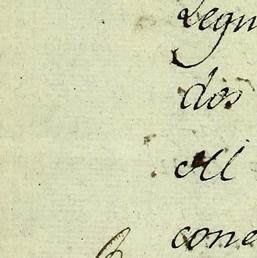 Legu
dos
All
cone